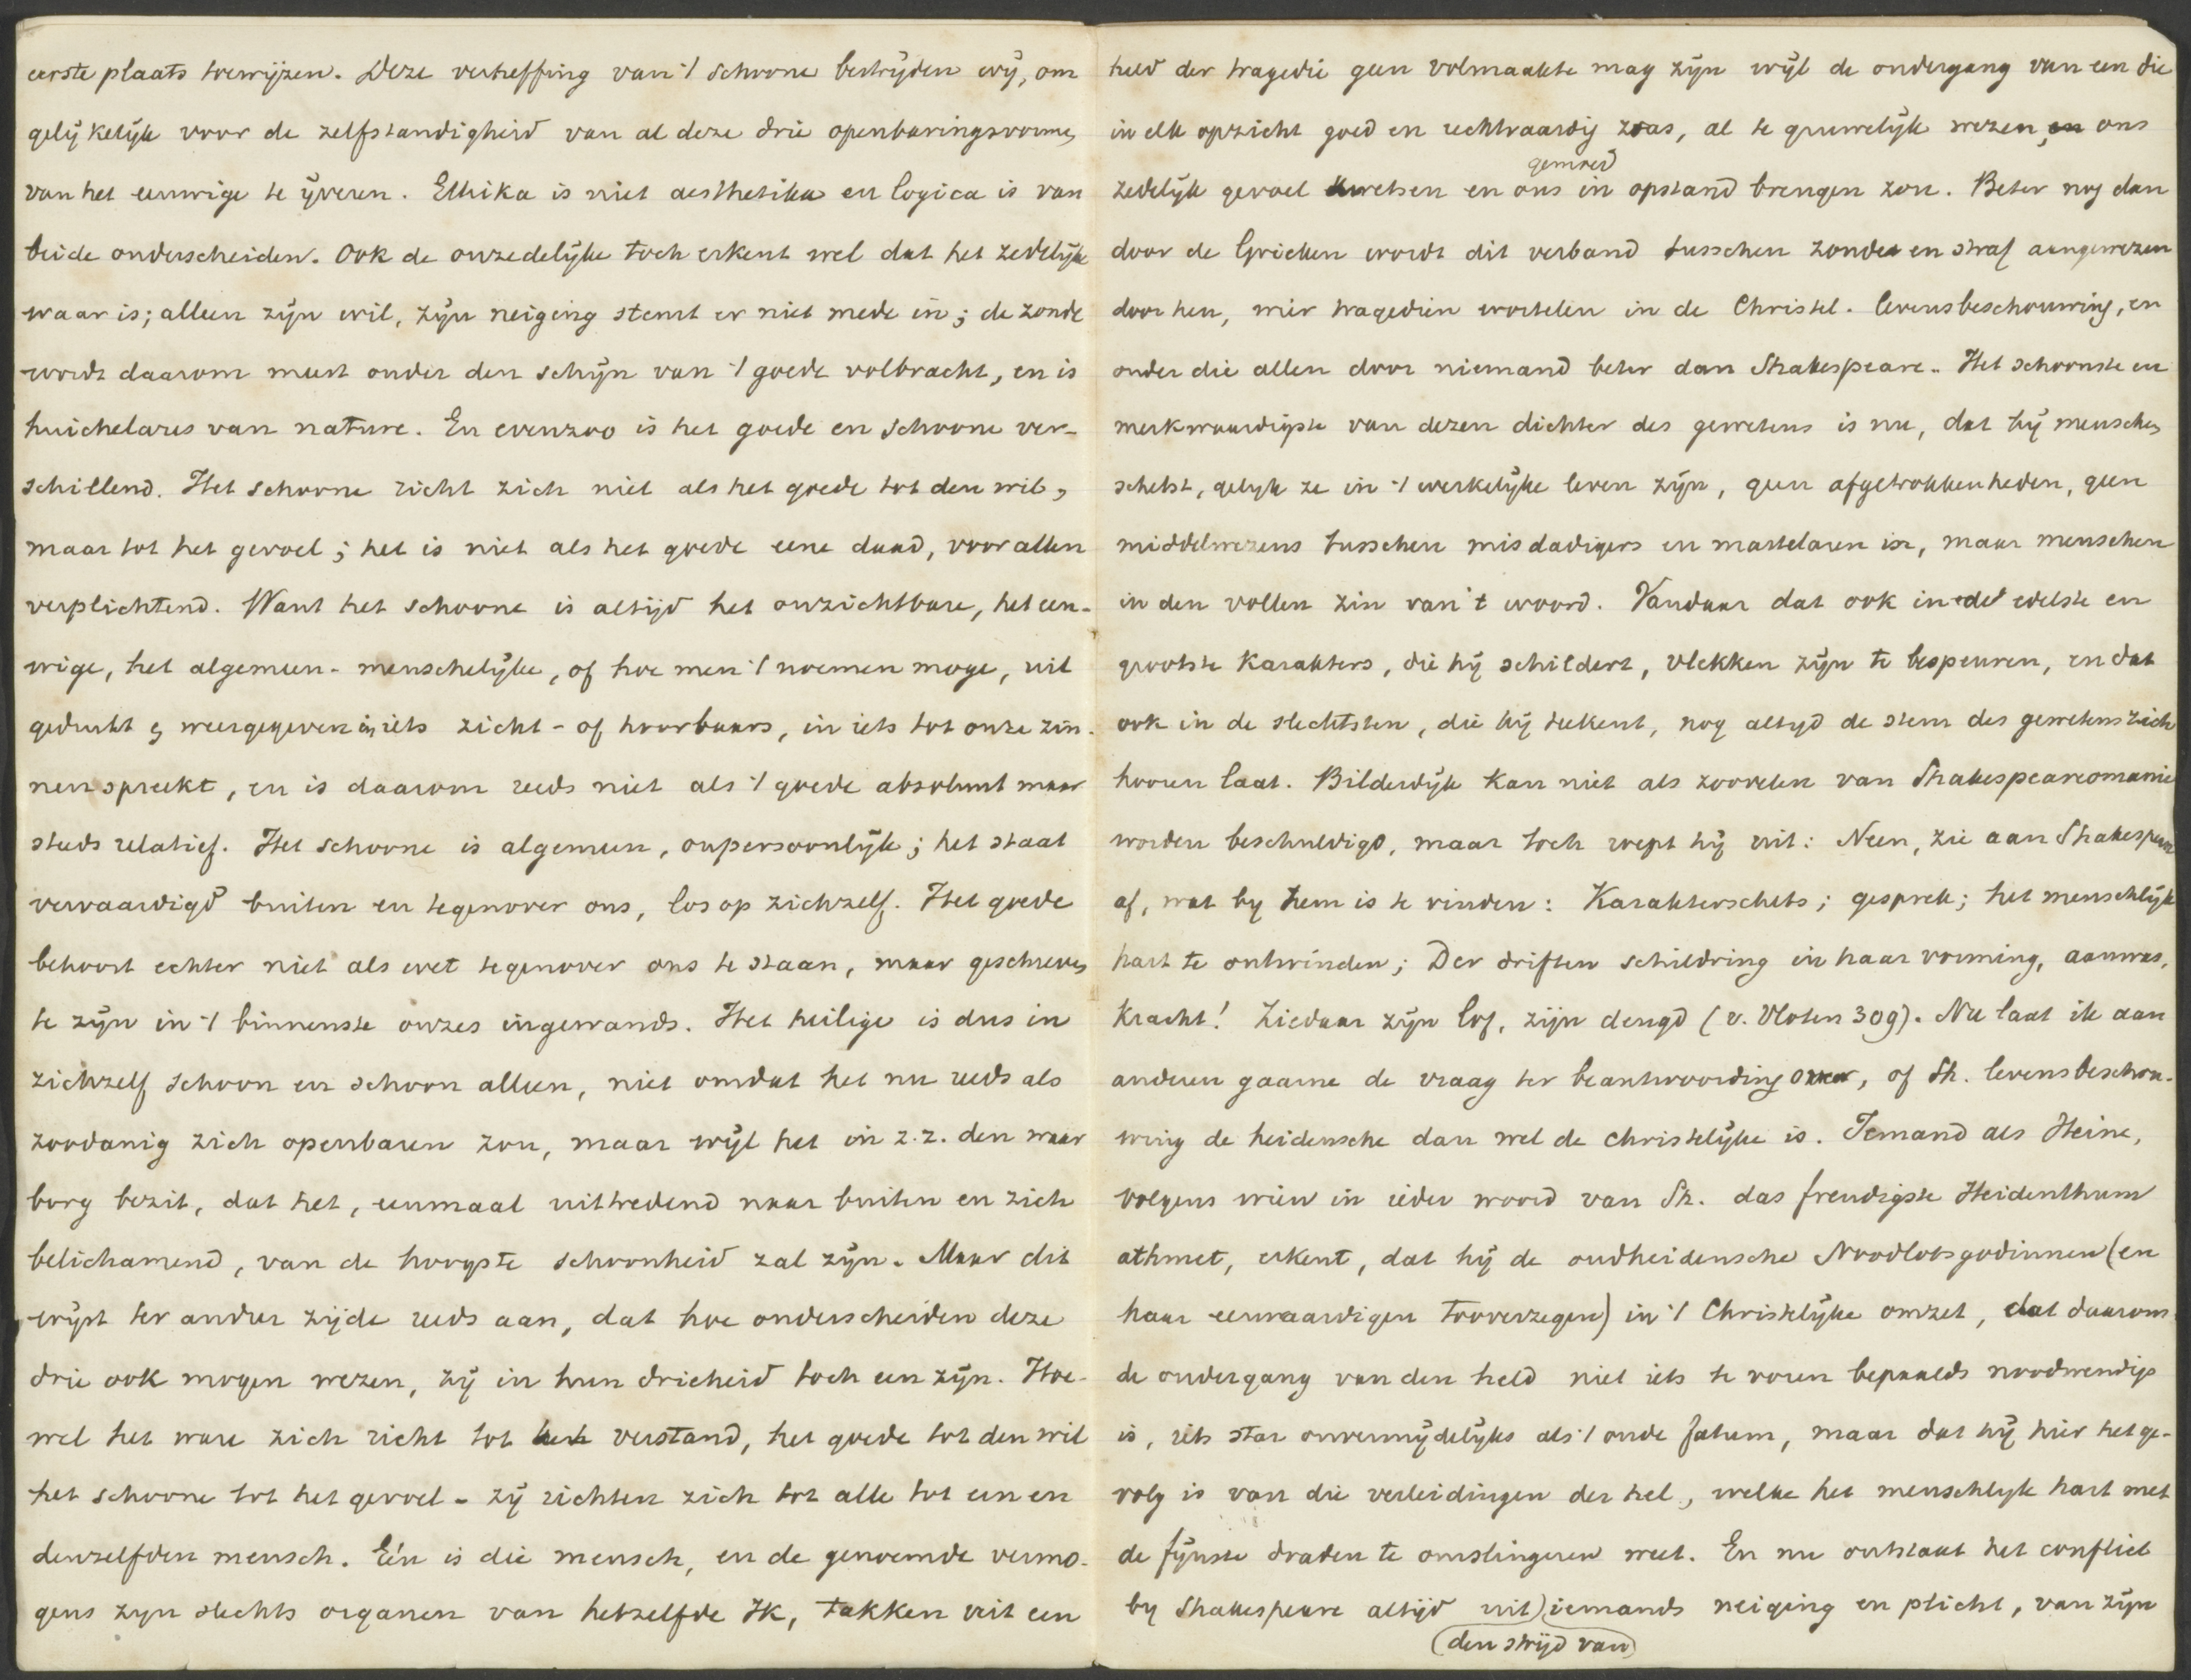 eerste plaats toewijzen. Deze vertreffing van 't schoone bestrijden wij, om
gelijkelijk voor de zelfstandigheid van al deze drie openbaringsvormen
van het eeuwige te ijveren. Ethika is niet aesthetika en logica is van
beide onderscheiden. Ook de onzedelijke toch erkent wel dat het zedelijke
waar is; alleen zijn wil, zijn neiging stemt er niet mede in; de zonde
wordt daarom meest onder den schijn van 't goede volbracht, en is
huichelares van nature. En evenzoo is het goede en schoone ver-
schillend. Het schoone richt zich niet als het goede tot den wil,
maar tot het gevoel; het is niet als het goede eene daad, voor allen
verplichtend. Want het schoone is altijd het onzichtbare, het eeu-
wige, het algemeen-menschelijke, of hoe men 't noemen moge, uit
gedrukt & weergegeven in iets zicht- of hoorbaars, in iets tot onze zin-
nen spreekt, en is daarom reeds niet als 't goede absoluut maar
steeds relatief. Het schoone is algemeen, onpersoonlijk; het staat
vervaardigd buiten en tegenover ons, los op zichzelf. Het goede
behoort echter niet als wet tegenover ons te staan, maar geschreven
te zijn in 't binnenste onzes ingewands. Het heilige is dus in
zichzelf schoon en schoon alleen, niet omdat het nu reeds als
zoodanig zich openbaren zou, maar wijl het in z.z. den waar
borg bezit, dat het, eenmaal uittredend naar buiten en zich
belichamend, van de hoogste schoonheid zal zijn. Maar dit
wijst ter andere zijde reeds aan, dat hoe onderscheiden deze
drie ook mogen wezen, zij in hun drieheid toch een zijn. Hoe-
wel het ware zich richt tot het verstand, het goede tot den wil
het schoone tot het gevoel - zij richten zich tot alle tot een en
denzelfden mensch. Eén is die mensch, en de genoemde vermo-
gens zyn slechts organen van hetzelfde Ik, takken uit een
held der tragedie geen volmaakte mag zijn wijl de ondergang van een die
in elk opzicht goed en rechtvaardig was, al te gruwelijk wezen, ons
zedelijk gevoel kwetsen en ons gemoed in opstand brengen zou. Beter nog dan
door de Grieken wordt dit verband tusschen zonde en straf aangewezen
door hen, wier tragediën wortelen in de Christel. levensbeschouwing, en
onder die allen door niemand beter dan Shakespeare.. Het schoonste en
merkwaardigste van dezen dichter des gewetens is nu, dat hij menschen
schetst, gelyk ze in 't werkelijke leven zijn, geen afgetrokkenheden, geen
middelwezens tusschen misdadigers en martelaren in, maar menschen
in den vollen zin van 't woord. Vandaar dat ook in de edelste en
grootste karakters, die hij schildert, vlekken zijn te bespeuren, en dat
ook in de slechtsten, die hij teekent, nog altyd de stem des gewetens zich
hooren laat. Bilderdijk kan niet als zoovelen van Shakespearomanie
worden beschuldigd, maar toch roept hij uit: Neen, zie aan Shakespear
af, wat by hem is te vinden: Karakterschets; gesprek; het menschlijk
hart te ontwinden; Der driften schildring in haar vorming, aanwas,
kracht! Ziedaar zijn lof, zijn deugd (v. Vloten 309). Nu laat ik aan
anderen gaarne de vraag ter beantwoording over, of Sh. levensbeschou-
wing de heidensche dan wel de christelijke is. Iemand als Heine,
volgens wien in ieder woord van Sh. das freudigste Heidenthum
athmet, erkent, dat hij de oudheidensche Noodlotsgodinnen (en
haar eerwaardigen tooverzegen) in 't Christelijke omzet, dat daarom
de ondergang van den held niet iets te voren bepaalds noodwendigs
is, iets star onvermijdelijks als 't oude fatum, maar dat hij hier het ge-
volg is van die verleidingen der hel, welke het menschlyk hart met
de fijnste draden te omslingeren weet. En nu ontstaat het conflict
by Shakespeare altijd uit (den strijd van) iemands neiging en plicht, van zijn